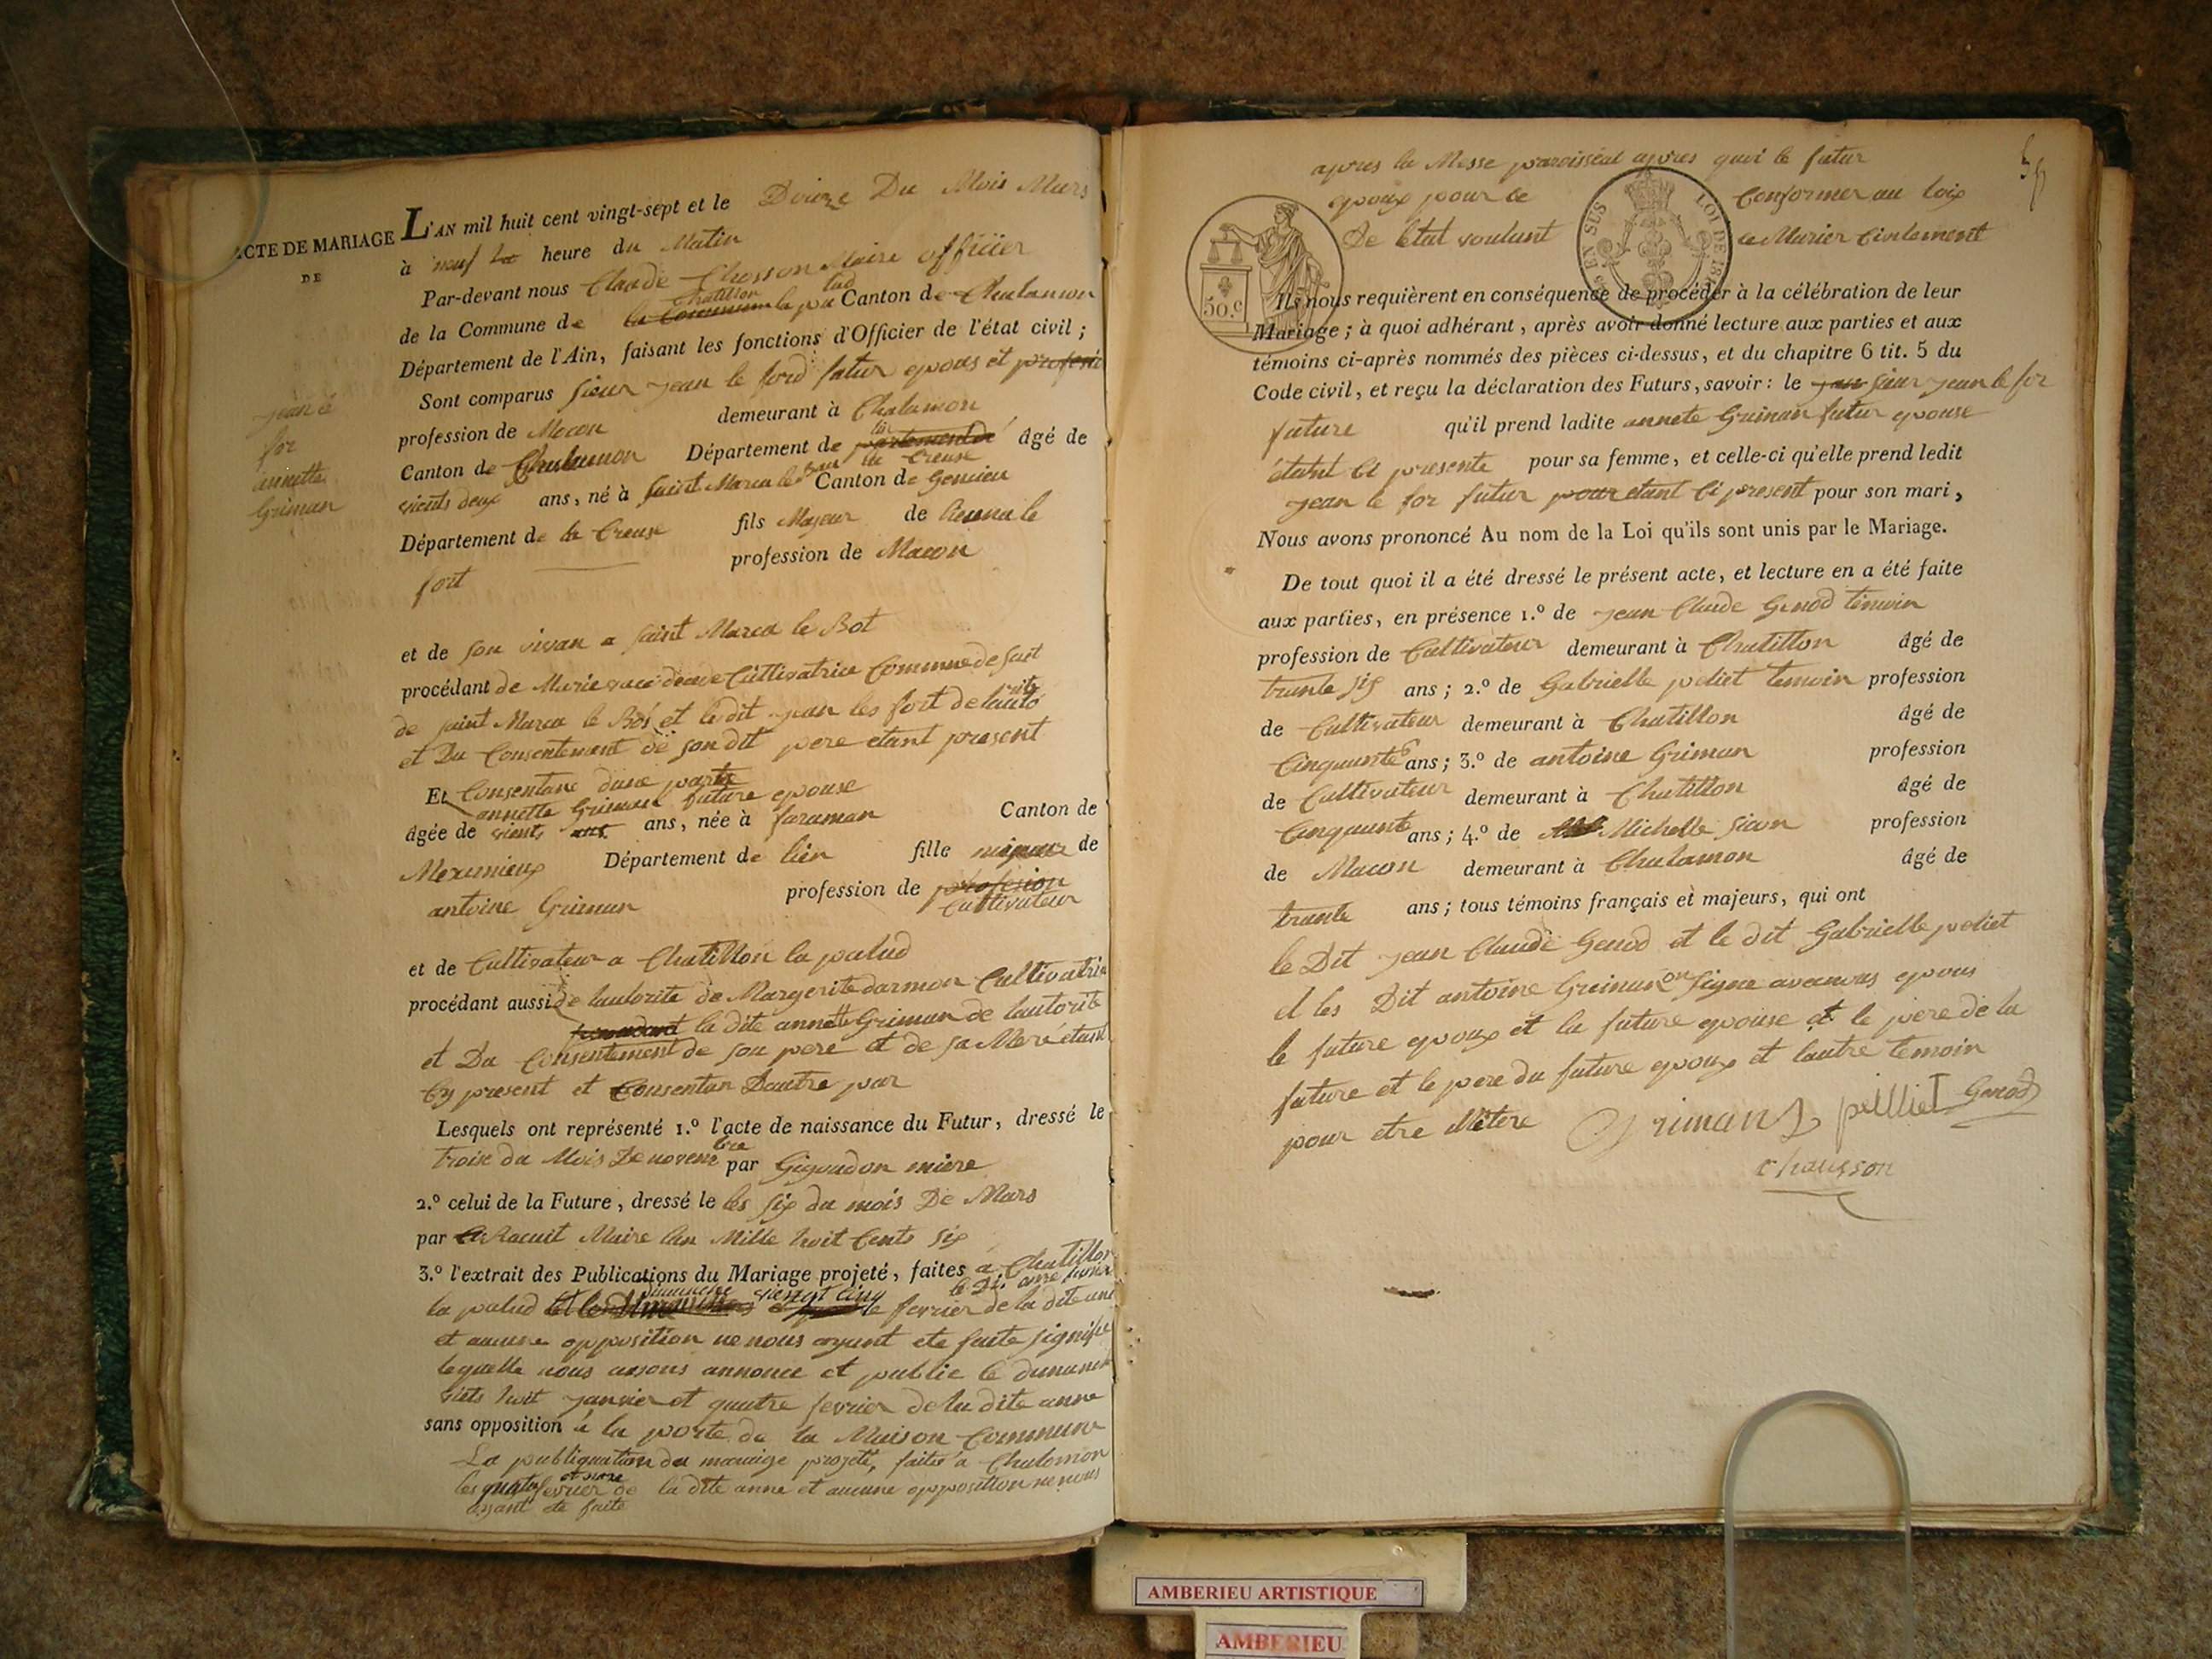 ACTE DE MARIAGE
DE
jean le
for
annette
Griman
L'AN mil huit cent vingt-sept et le Douze Du Mois Mars
à neuf heure du Matin
Par-devant nous Claude Chosson Maire officier
de la Commune de Chatillon la palud Canton de Chalamon
Département de l'Ain, faisant les fonctions d'Officier de l'état civil ;
Sont comparus sieur jean le ford futur epous et
profession de Mocon demeurant à Chalamon
Canton de Chalamon Département de lin âgé de
vients deux ans, né à saint Marca le Canton de
Département de la Creuse fils Majeur de
fort profession de Macon
et de son vivan a saint Marca le Bot
procédant de Marie Cultivatrice Commune de sait
de saint Marca le Bot et le dit jean les fort de lautorité
et Du Consentement de son dit pere etant present
Et Consentans dune partie
annette Griman future epouse
âgée de vients ans, née à faraman Canton de
Meximieux Département de lien fille mineure de
antoine Griman profession de cultivateur
et de Cultivateur a Chatillon la palud
procédant aussi de lautorite de Margerite darmon Cultivatrice
la dite annette Griman de lautorité
et Du Consentement de son pere et de sa Mere étant
Cy present et Consentan Dautre par
Lesquels ont représenté 1.º l'acte de naissance du Futur, dressé le
troise du Mois De novembre par Gigoudon mière
2.º celui de la Future, dressé le les six du mois De Mars
par Racuit Maire lan Mille huit Cents six
3.º l'extrait des Publications du Mariage projeté, faites a Chatillon
la palud dimanche viengt cinq fevrier de la dite anne
et aucune opposition ne nous ayant ete faite signifie
lequelle nous avons annonce et publie le dimanche
vients huit janvier et quatre fevrier de la dite anne
sans opposition à la porte de la Maison Commune
La publiquation du mariage projeté, faites a Chalomon
les quatre et onze fevrier de la dite anne et aucune opposition ne nous
ayant été faite
apres la Messe paroisseal apres quoi le futur
epoux pour ce Conformer au loix
De letat voulant ce Marier Civilement
50.c
EN SUS
LOI DE 18
Ils nous requièrent en conséquence de procéder à la célébration de leur
Mariage ; à quoi adhérant, après avoir donné lecture aux parties et aux
témoins ci-après nommés des pièces ci-dessus, et du chapitre 6 tit. 5 du
Code civil, et reçu la déclaration des Futurs, savoir : le jean sieur jean le for
future qu'il prend ladite annete Griman futur epouse
étant Ci presente pour sa femme, et celle-ci qu'elle prend ledit
jean le for futur pour etant Ci present pour son mari,
Nous avons prononcé Au nom de la Loi qu'ils sont unis par le Mariage.
De tout quoi il a été dressé le présent acte, et lecture en a été faite
aux parties, en présence 1.º de jean Claude Genod temoin
profession de Cultivateur demeurant à Chatillon âgé de
trante six ans ; 2.º de Gabrielle peliet temoin profession
de Cultivateur demeurant à Chatillon âgé de
Cinquante ans ; 3.º de antoine Griman profession
de Cultivateur demeurant à Chatillon âgé de
Cinquante ans ; 4.º de Michelle sicon profession
de Macon demeurant à Chalamon âgé de
trante ans ; tous témoins français et majeurs, qui ont
le Dit jean Claude Genod et le dit Gabrielle peliet
et les Dit antoine Greiman on signe avec nous
le future epoux et la future epouse et le père de la
future et le pere du future epoux et lautre temoin
pour etre
Griman pilliet Genod
chausson
AMBERIEU ARTISTIQUE
AMBERIEU